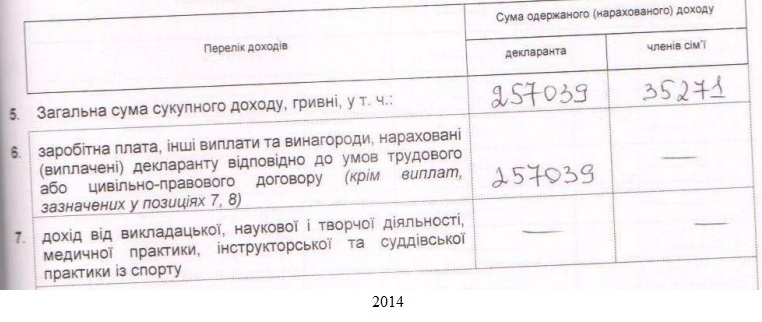 Перелік доходів
Сума одержаного (нарахованого) доходу
декларанта
членів сім'ї
5. Загальна сума сукупного доходу, гривні, у т. ч.: 257039 35271
6. заробітна плата, інші виплати та винагороди, нараховані
(виплачені) декларанту відповідно до умов трудового
або цивільно-правового договору (крім виплат, 257039 —
зазначених у позиціях 7, 8)
7. дохід від викладацької, наукової і творчої діяльності,
медичної практики, інструкторської та суддівської — —
практики із спорту
2014